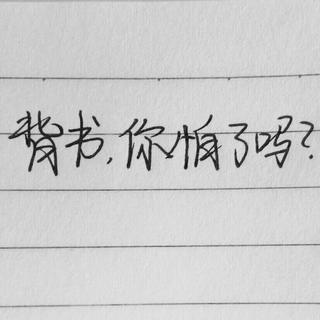 背书,你怕了吗?